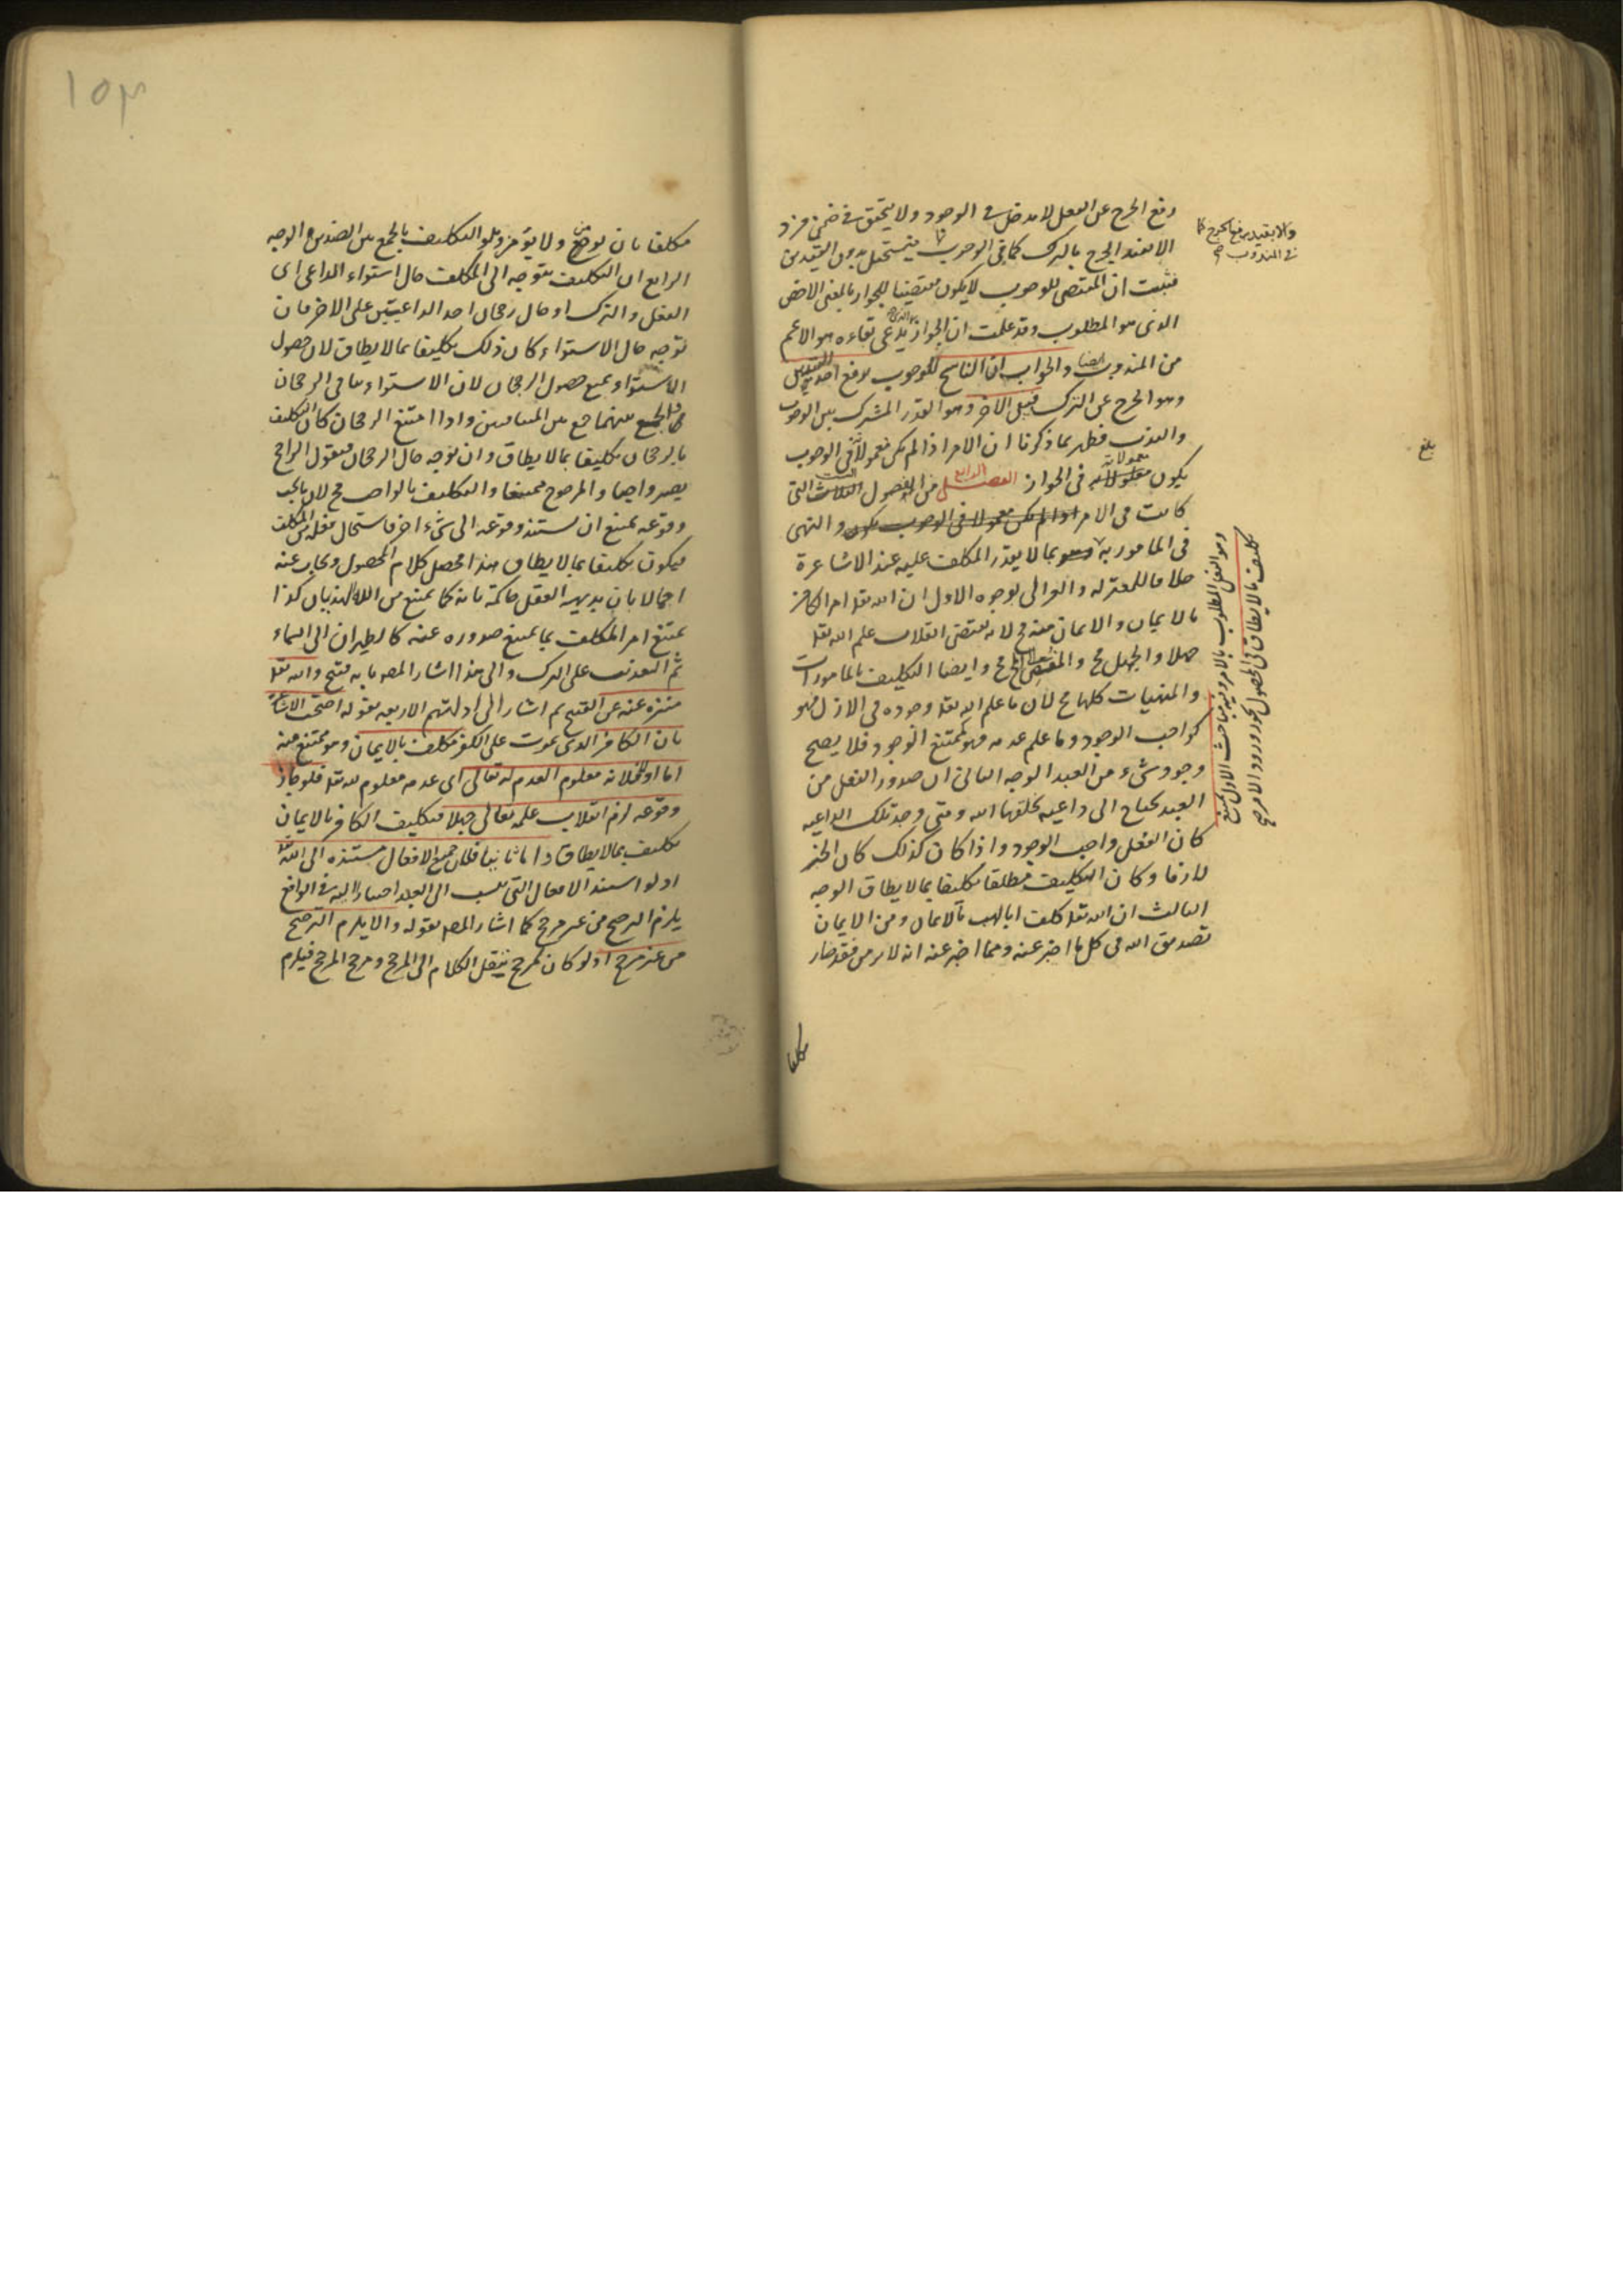 رفع الحرج عن الفعل لا مدخل له في الوجود ولا يتحقق في ضمن فرد
الا بقيد الحرج بالترك كما في الوجوب فيستحيل بدون القيدين
والا بقيد رفع الحرج كما
في المندوب صح
فثبت ان المقتضى للوجوب لا يكون مقتضيا للجواز بالمعنى الاخص
الذى هو المطلوب وقد علمت ان الجواز يدعى بقاءه هو الاعم
من المندوب ايضا والجواب ان الناسخ للوجوب يرفع احد
وهو الحرج عن الترك فبقى الاخر وهو القدر المشترك بين الوجوب
والندب فظهر بما ذكرنا ان الامر اذا لم يكن معمولا فى الوجوب
بلغ
يكون معمولا به فى الجواز الفصل الرابع من الفصول الثلاث التى
كانت فى الامر اذا لم يكن معمولا فى الوجوب يكون والنهى
فى المامور به وهو بما لا يقدر المكلف عليه عند الاشاعرة
وهو الفعل المطلوب بالامر وفيه مباحث الاول
تكليف ما لا يطاق فى المحصول يجوز ورود الامر
خلافا للمعتزلة والغزالى لوجوه الاول ان الله تعالى امر الكافر
بالايمان والايمان منه مح لانه يقتضى انقلاب علم الله تعالى
جهلا والجهل مح والمفضى الى المح مح وايضا التكليف بالمامورات
والمنهيات كلها مح لان ما علم الله تعالى وجوده فى الازل فهو
كواجب الوجود وما علم عدمه فهو كممتنع الوجود فلا يصح
وجود شىء من العبد الوجه الثانى ان صدور الفعل من
العبد يحتاج الى داعية يخلقها الله ومتى وجد تلك الداعية
كان الفعل واجب الوجود واذا كان كذلك كان الجبر
لازما وكان التكليف مطلقا تكليفا بما لا يطاق الوجه
الثالث ان الله تعالى كلف ابا لهب بالايمان ومن الايمان
تصديق الله فى كل ما اخبر عنه ومما اخبر عنه انه لا يومن فقد صار
مكلفا
١٥٣
مكلفا بان يومن ولا يؤمن وهو التكليف بالجمع بين الضدين الوجه
الرابع ان التكليف يتوجه الى المكلف حال استواء الداعى الى
الفعل والترك او حال رجحان احد الداعيتين على الاخر فان
توجه حال الاستواء كان ذلك تكليفا بما لا يطاق لان حصول
الاستواء يمنع حصول الرجحان لان الاستواء ينافى الرجحان
فالجمع بينهما جمع بين المتنافيين واذا امتنع الرجحان كان التكليف
بالرجحان تكليفا بما لا يطاق وان توجه حال الرجحان فنقول الراجح
يصير واجبا والمرجوح ممتنعا والتكليف بالواجب مح لان ما يجب
وقوعه يمتنع ان يستند وقوعه الى شىء اخر فاستحال فعله من المكلف
فيكون تكليفا بما لا يطاق هذا محصل كلام المحصول ويجاب عنه
اجمالا بان بديهة العقل حاكمة بانه كما يمتنع من الله الهذيان كذا
يمتنع امر المكلف بما يمتنع صدوره عنه كالطيران الى السماء
ثم التعذيب على الترك والى هذا اشار المص بانه قبيح والله تعالى
منزه عنه عن القبيح ثم اشار الى ادلتهم الاربعة بقوله احتجت الاشاعرة
بان الكافر الذى يموت على الكفر مكلف بالايمان وهو ممتنع منه
اما اولا فلانه معلوم العدم لله تعالى اى عدمه معلوم لله تعالى فلو جاز
وقوعه لزم انقلاب علمه تعالى جهلا فتكليف الكافر بالايمان
تكليف بما لا يطاق واما ثانيا فلان جميع الافعال مستندة الى الله تعالى
اذ لو استند الافعال التى تنسب الى العبد اليه فى الواقع
يلزم الترجيح من غير مرجح كما اشار المص بقوله والا يلزم الترجيح
من غير مرجح اذ لو كان لمرجح ينقل الكلام الى المرجح ومرجح المرجح فيلزم